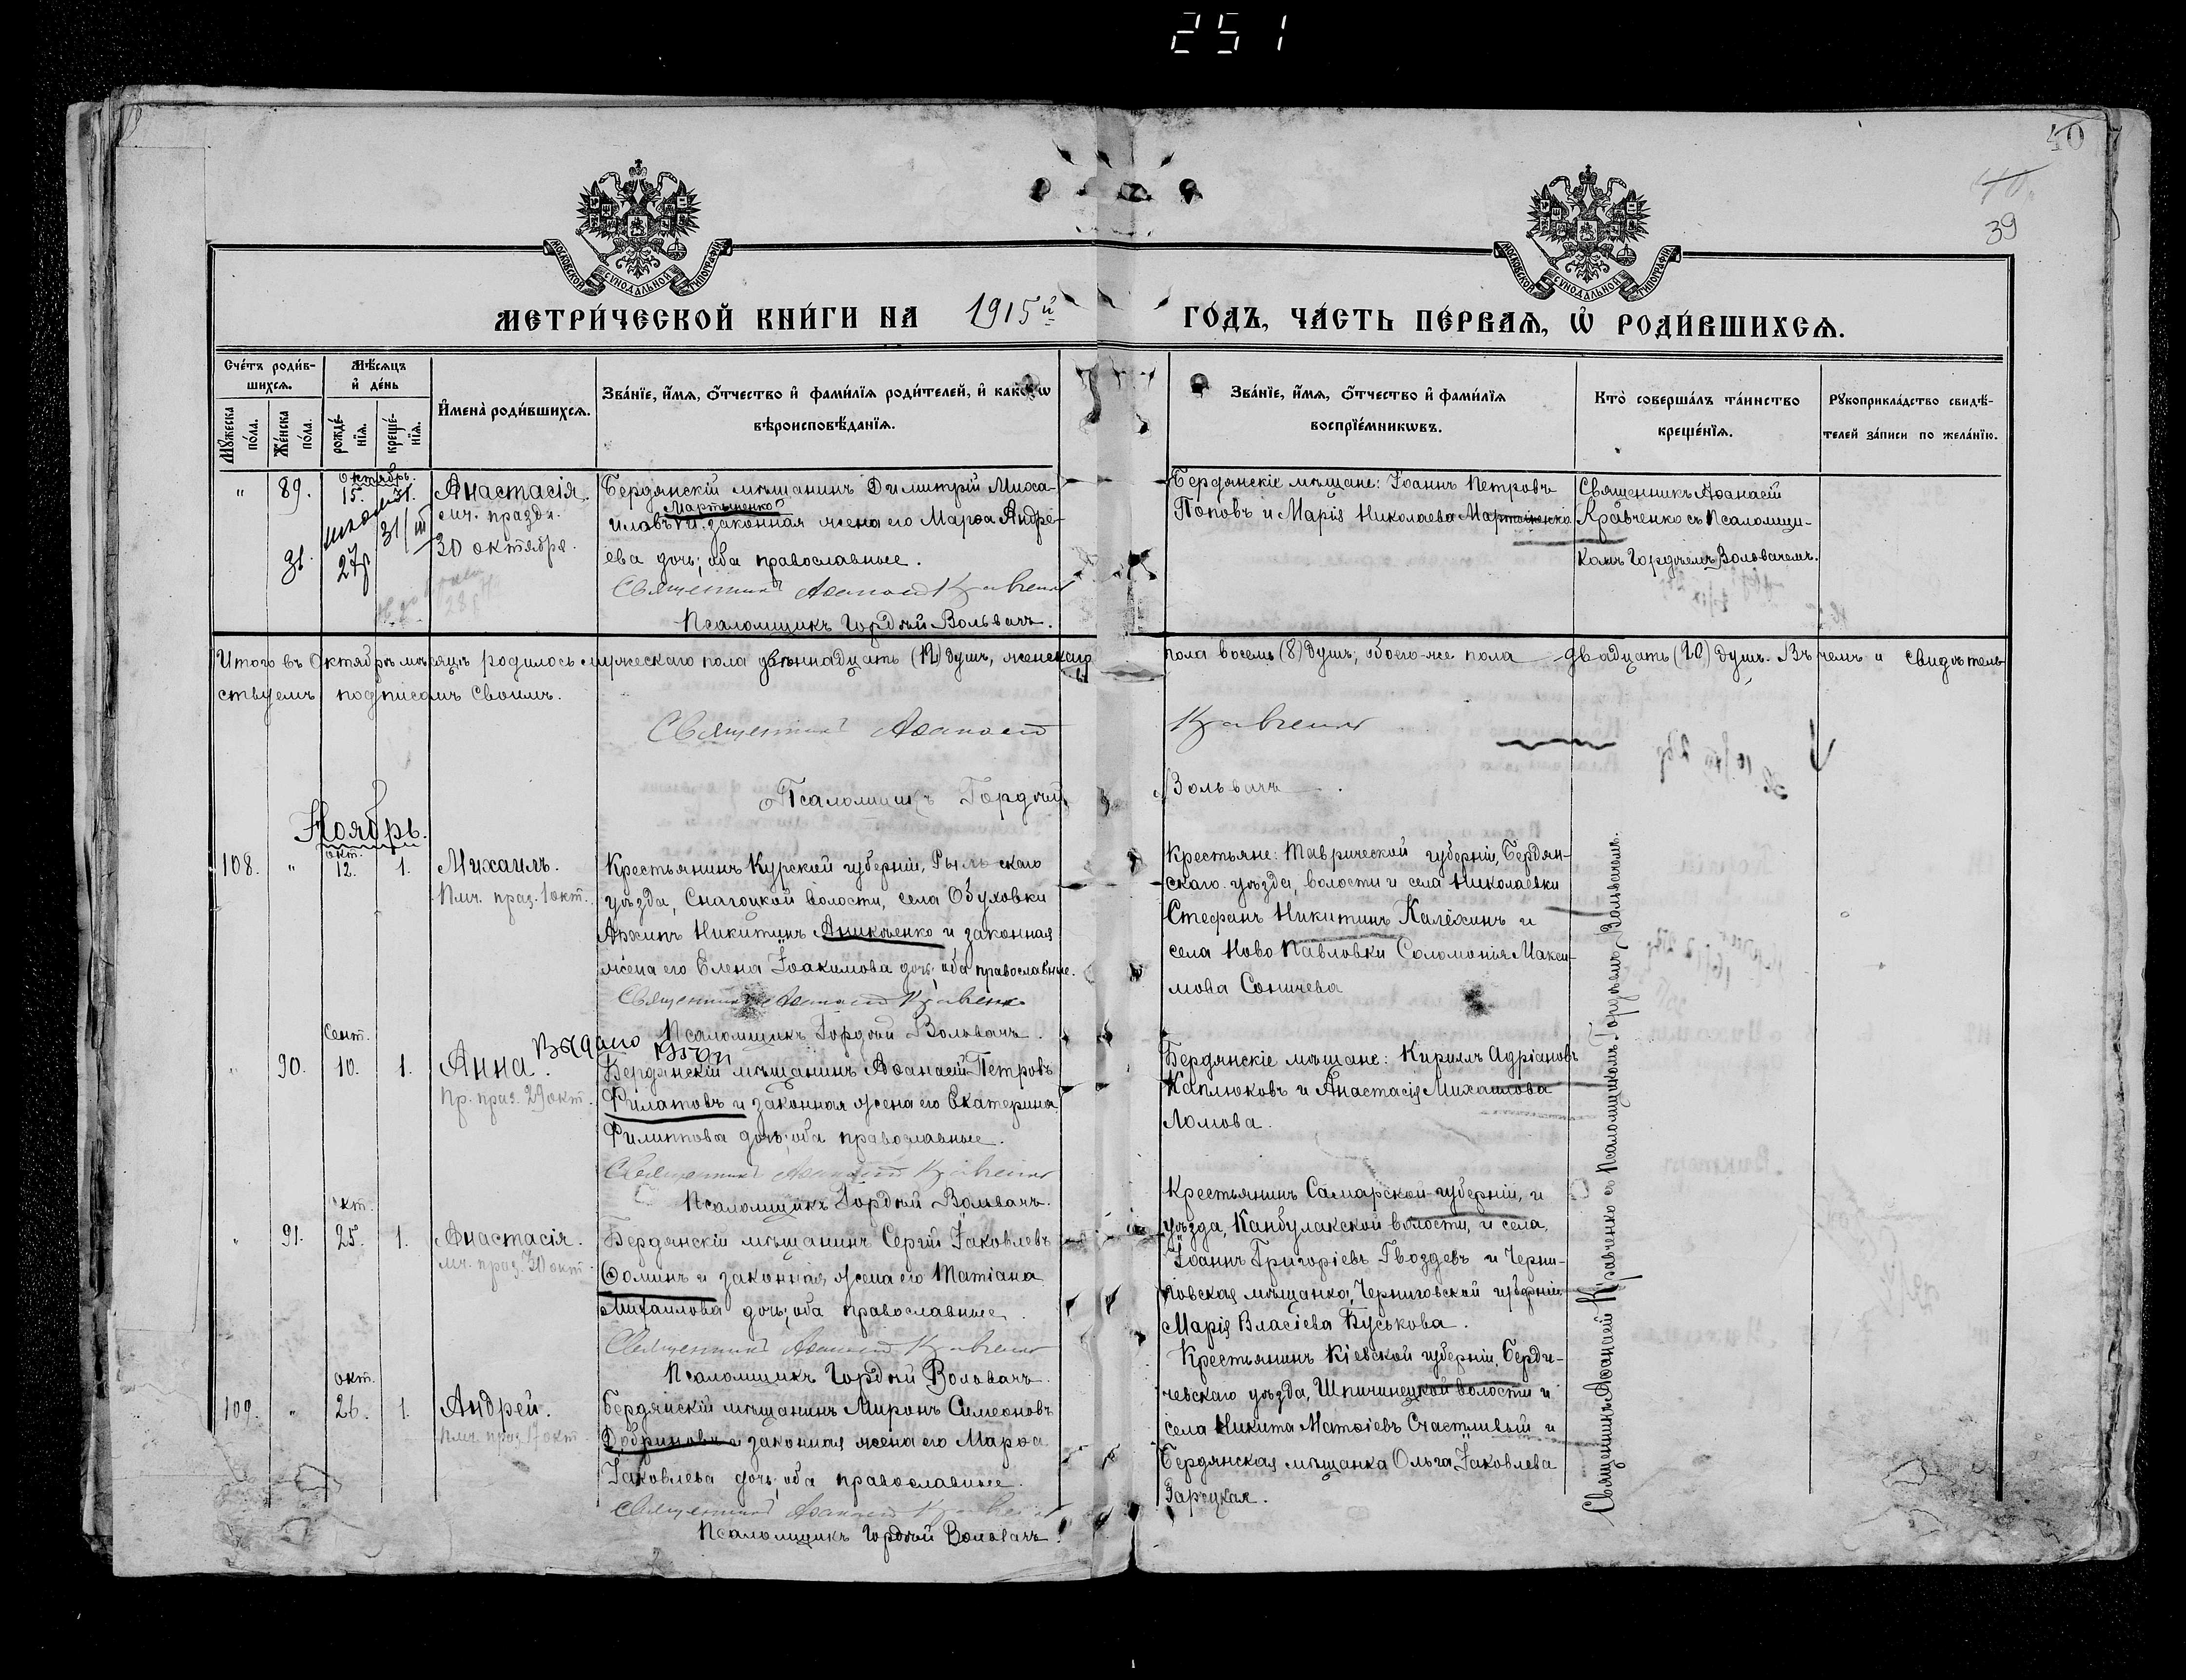 251
40
39
МОСКОВСКОЙ СѴНОДАЛЬНОЙ ТИПОГРАФІИ
МОСКОВСКОЙ СѴНОДАЛЬНОЙ ТИПОГРАФІИ
МЕТРИ́ЧЕСКОЙ КНИ́ГИ НА 1915й ГО́ДЪ, ЧА́СТЬ ПЕ́РВАЯ, Ѡ҆ РОДИ́ВШИХСЯ.
Сче́тъ роди́в-
шихся.
Мѣ́сяцъ
и҆ де́нь
Мꙋ́жеска по́ла.
Же́нска по́ла.
рожде́-
нїя.
креще́-
нїя.
И҆мена̀ роди́вшихся.
Зва́нїе, и҆́мя, ѻ҆́тчество и҆ фами́лїя роди́телей, и҆ како́гѡ
вѣроисповѣ́данїя.
Зва́нїе, и҆́мя, ѻ҆́тчество и҆ фами́лїя
воспрїе́мникѡвъ.
Кто̀ соверша́лъ та́инство
креще́нїя.
Рꙋкоприкла́дство свидѣ́-
телей за́писи по жела́нїю.
Октябрь.
" 89. 15. 31. Анастасія.
мч. празд.
30 октября.
Бердянскій мѣщанинъ Димитрій Миха-
Мартыненко
иловъ и законная жена его Марѳа Андре-
ева дочь; оба православные.
Священникъ Аѳанасій Кравченко
Псаломщикъ Гордѣй Вольвачъ.
Бердянскіе мѣщане: Іоаннъ Петровъ
Поповъ и Марія Николаева Мартыненко
Священникъ Аѳанасій
Кравченко съ Псаломщи-
комъ Гордѣемъ Вольвачемъ.
Итого въ Октябрѣ мѣсяцѣ родилось мужескаго пола двѣннадцать (12) душъ, женскаго пола восемь (8) душъ, обоего же пола двадцать (20) душъ. Въ чемъ и свидѣтель-
ствуемъ подписомъ своимъ.
Священникъ Аѳанасій Кравченко
Псаломщикъ Гордѣй Вольвачъ
Ноябрь.
окт.
108. " 12. 1. Михаилъ.
Пмч. праз. 1 окт.
Крестьянинъ Курской губерніи, Рыльскаго
уѣзда, Снагоцкой волости, села Обуховки
Архипъ Никитинъ Аникѣенко и законная
жена его Елена Іоакимова дочь; оба православные.
Священникъ Аѳанасій Кравченко
Псаломщикъ Гордѣй Вольвачъ.
Крестьяне: Таврической губерніи, Бердян-
скаго уѣзда, волости и села Николаевки
Стефанъ Никитинъ Калёхинъ и
села Ново Павловки Соломонія Макси-
мова Соничева
Сент.
" 90. 10. 1. Анна.
Выдано
Пр. праз. 29 окт.
Бердянскій мѣщанинъ Аѳанасій Петровъ
Филатовъ и законная жена его Екатерина
Филиппова дочь; оба православные.
Священникъ Аѳанасій Кравченко
Псаломщикъ Гордѣй Вольвачъ.
Бердянскіе мѣщане: Кириллъ Адріановъ
Каплюковъ и Анастасія Михаилова
Ломова.
окт.
" 91. 25. 1. Анастасія.
мч. праз. 30 окт.
Бердянскій мѣщанинъ Сергій Іаковлевъ
Ѳоминъ и законная жена его Татіана
Михаилова дочь; оба православные.
Священникъ Аѳанасій Кравченко
Псаломщикъ Гордѣй Вольвачъ.
Крестьянинъ Самарской губерніи, и
уѣзда, Канбулакской волости, и села,
Іоаннъ Григоріевъ Гвоздевъ и Черни-
говская мѣщанка, Черниговской губерніи
Марія Власіева Буськова.
окт.
109. " 26. 1. Андрей.
Пмч. праз. 17 окт.
Бердянскій мѣщанинъ Миронъ Симеоновъ
Добриновъ и законная жена его Марѳа
Іаковлева дочь; оба православные.
Священникъ Аѳанасій Кравченко
Псаломщикъ Гордѣй Вольвачъ.
Крестьянинъ Кіевской губерніи, Берди-
чевскаго уѣзда, Шпичинецкой волости и
села Никита Матѳіевъ Счастливый и
Бердянская мѣщанка Ольга Іаковлева
Зарѣцкая.
Священникъ Аѳанасій Кравченко съ Псаломщикомъ Гордѣемъ Вольвачемъ.